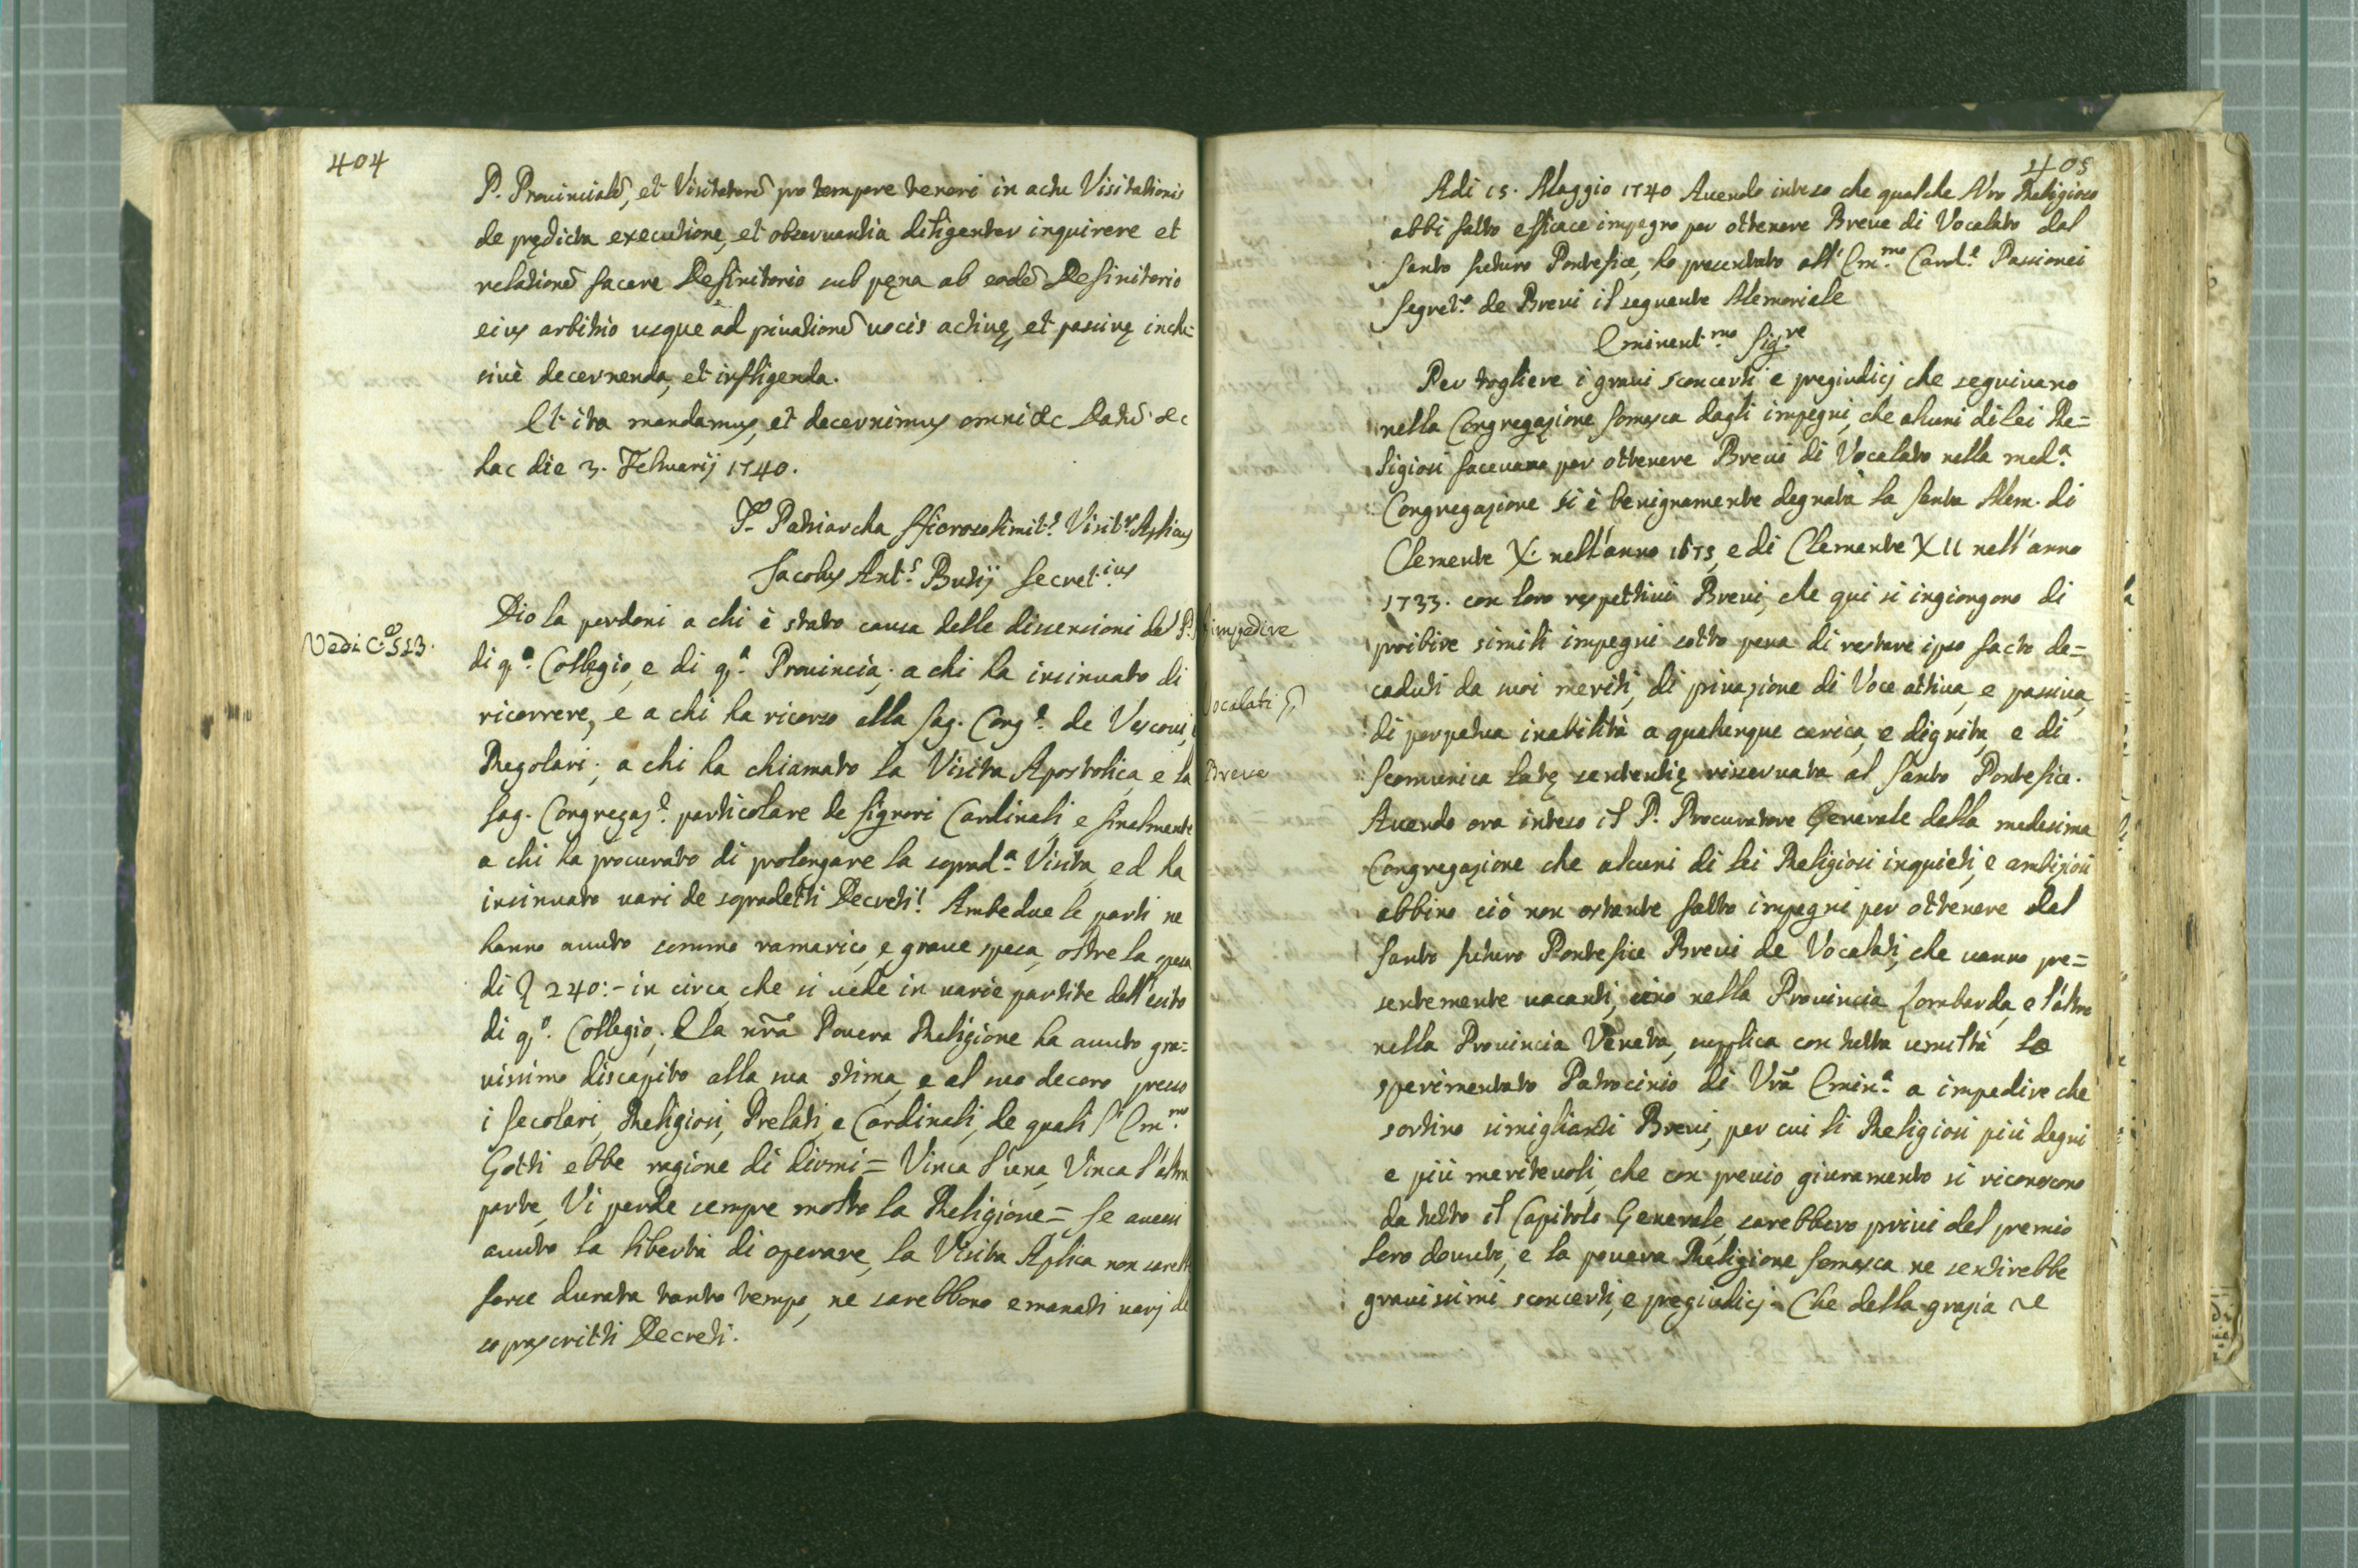 404
P. Prouincialẽ, et Visitatorẽ pro tempore teneri in actu Visitationis
de prędicta executione, et obseruantia diligenter inquirere et
relationẽ facere Definitorio sub pęna ab eodẽ Definitorio
eius arbitrio usque ad priuationẽ uocis actiuę, et passiuę inclu=
siuè decernenda, et infligenda.
Et ita mandamus, et decernimus omni &c Datũ &c
hac die 3. Februarij 1740.
F. Patriarcha Hierosolimit.s Visit.r Aplicus
Jacobus Ant.s Butij Secret.ius
Vedi C.e 523.
Dio la perdoni a chi è stato causa delle dissensioni de P.
di q.o Collegio, e di q.a Prouincia; a chi ha insinuato di
ricorrere, e a chi ha ricorso alla Sag. Cong.e de Vescoui,
Regolari; a chi ha chiamato la Visita Apostolica, e la
Sag. Congregaz.e particolare de Signori Cardinali e finalmente
a chi ha procurato di prolongare la soprad.a Visita, ed ha
insinuato uari de sopradetti Decreti! Ambedue le parti ne
hanno auuto sommo ramarico, e graue spesa, oltre la spesa
di 240:- in circa, che si uede in uarie partite dell'esito
di q.o Collegio. E la nrã Pouera Religione ha auuto gra=
uissimo discapito alla sua stima, e al suo decoro presso
i Secolari, Religiosi, Prelati, e Cardinali, de quali l'Em.mo
Gotti ebbe ragione di dirmi = Vinca l'una, Vinca l'altra
parte, Vi perde sempre molto la Religione = Se auessi
auuto la libertà di operare, la Visita Aplica non sarebbe
forse durata tanto tempo, ne sarebbero emanati uarj de
soprascritti Decreti.
405
Adi 15. Maggio 1740 Auendo inteso che qualche Nro Religioso
abbi fatto efficace impegno per ottenere Breue di Vocalato dal
Santo futuro Pontefice, ho presentato all'Em.mo Card.e Passionei
Segret.o de Breui il seguente Memoriale
Eminent.mo Sig.re
Per togliere i graui sconcerti e pregiudicj che seguiuano
nella Congregazione Somasca dagli impegni, che alcuni di lei Re=
ligiosi faceuano per ottenere Breui di Vocalato nella med.a
Congregazione si è benignamente degnata la Santa Mem. di
Clemente X. nell'anno 1675, e di Clemente XII nell'anno
1733. con loro respettiui Breui, che qui si ingiongono di
impedire
proibire simili impegni sotto pena di restare ipso facto de=
caduti da suoi meriti, di priuazione di Voce attiua, e passiua,
Vocalati p
di perpetua inabilità a qualunque carica, e dignita, e di
Scomunica latę sententię riseruata al Santo Pontefice.
Breue
Auendo ora inteso il P. Procuratore Generale della medesima
Congregazione che alcuni di lei Religiosi inquieti, e ambiziosi
abbino ciò non ostante fatto impegni per ottenere dal
Santo futuro Pontefice Breui de Vocalati, che uanno pre=
sentemente uacanti, uno nella Prouincia Lombarda, e l'altro
nella Prouincia Veneta, supplica con tutta umiltà lo
sperimentato Patrocinio di Vrã Emin.a a impedire che
sortino simiglianti Breui, per cui li Religiosi più degni
e più meriteuoli, che con preuio giuramento si riconoscono
da tutto il Capitolo Generale, sarebbero priui del premio
loro douuto, e la pouera Religione Somasca ne sentirebbe
grauissimi sconcerti, e pregiudicj. Che della grazia &c